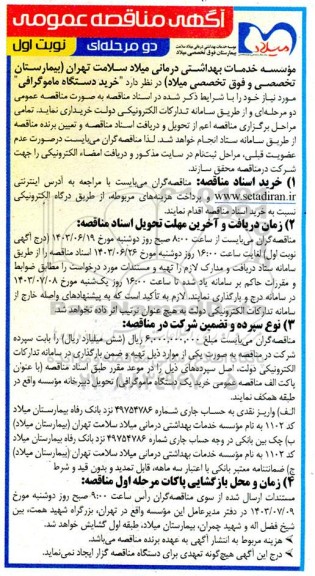 آگهی مناقصه عمومی
دو مرحله‌ای
نوبت اول
میلاد
موسسه خدمات بهداشتی درمانی میلاد سلامت
بیمارستان فوق تخصصی میلاد
مؤسسه خدمات بهداشتی درمانی میلاد سلامت تهران (بیمارستان
تخصصی و فوق تخصصی میلاد) در نظر دارد "خرید دستگاه ماموگرافی"
مورد نیاز خود را با شرایط ذکر شده در اسناد مناقصه به صورت مناقصه عمومی
دو مرحله‌ای و از طریق سامانه تدارکات الکترونیکی دولت خریداری نماید. تمامی
مراحل برگزاری مناقصه اعم از تحویل و دریافت اسناد مناقصه و تعیین برنده مناقصه
از طریق سامانه ستاد انجام خواهد شد. لذا مناقصه‌گران می‌بایست درصورت عدم
عضویت قبلی، مراحل ثبت‌نام در سایت مذکور و دریافت امضاء الکترونیکی را جهت
شرکت درمناقصه محقق سازند.
۱) خرید اسناد مناقصه: مناقصه‌گران می‌بایست با مراجعه به آدرس اینترنتی
www.setadiran.ir و پرداخت هزینه‌های مربوطه، از طریق درگاه الکترونیکی
نسبت به خرید اسناد مناقصه اقدام نمایند.
۲) زمان دریافت و آخرین مهلت تحویل اسناد مناقصه:
مناقصه‌گران می‌بایست از ساعت ۸:۰۰ صبح روز دوشنبه مورخ ۱۴۰۳/۰۶/۱۹ (درج آگهی
نوبت اول) لغایت ساعت ۱۶:۰۰ روز دوشنبه مورخ ۱۴۰۳/۰۶/۲۶ اسناد مناقصه را از طریق
سامانه ستاد دریافت و مدارک لازم را تهیه و مستندات مورد درخواست را مطابق ضوابط
و مقررات حاکم بر سامانه یاد شده تا ساعت ۱۶:۰۰ روز یک‌شنبه مورخ ۱۴۰۳/۰۷/۰۸
در سامانه درج و بارگذاری نمایند. لازم به تأکید است که به پیشنهادهای واصله خارج از
سامانه تدارکات الکترونیکی دولت به هیچ عنوان ترتیب اثر داده نخواهد شد.
۳) نوع سپرده و تضمین شرکت در مناقصه:
مناقصه‌گران می‌بایست مبلغ ۶.۰۰۰.۰۰۰.۰۰۰ ریال (شش میلیارد ریال) را بابت سپرده
شرکت در مناقصه به صورت یکی از موارد ذیل تهیه و ضمن بارگذاری در سامانه تدارکات
الکترونیکی دولت، اصل سپرده‌های ذیل را در موعد مقرر طبق اسناد مناقصه (با عنوان
پاکت الف مناقصه عمومی خرید یک دستگاه ماموگرافی) تحویل دبیرخانه مؤسسه واقع در
طبقه همکف نمایند.
الف) واریز نقدی به حساب جاری شماره ۴۹۷۵۴۷۸۶ نزد بانک رفاه بیمارستان میلاد
کد ۱۱۰۲ به نام مؤسسه خدمات بهداشتی درمانی میلاد سلامت تهران (بیمارستان میلاد)
ب) چک بین بانکی در وجه حساب جاری شماره ۴۹۷۵۴۷۸۶ نزد بانک رفاه بیمارستان میلاد
کد ۱۱۰۲ به نام مؤسسه خدمات بهداشتی درمانی میلاد سلامت تهران (بیمارستان میلاد)
ج) ضمانتنامه معتبر بانکی با اعتبار سه ماهه، قابل تمدید و بدون قید و شرط
۴) زمان و محل بازگشایی پاکات مرحله اول مناقصه:
مستندات ارسال شده از سوی مناقصه‌گران رأس ساعت ۹:۰۰ صبح روز دوشنبه مورخ
۱۴۰۳/۰۷/۰۹ در دفتر مدیرعامل این مؤسسه واقع در تهران، بزرگراه شهید همت، بین
شیخ فضل اله و شهید چمران، بیمارستان میلاد، طبقه اول گشایش خواهد شد.
هزینه مربوط به انتشار آگهی به عهده برنده مناقصه می‌باشد.
درج این آگهی هیچ‌گونه تعهدی برای دستگاه مناقصه گزار ایجاد نمی‌نماید.